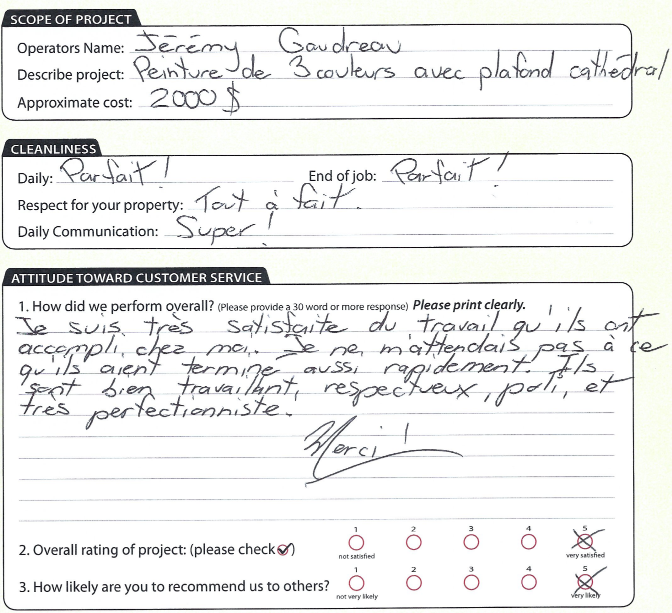 SCOPE OF PROJECT
Operators Name: Jérémy Gaudreau
Describe project: Peinture de 3 couleurs avec plafond cathédral
Approximate cost: 2000 $
CLEANLINESS
Daily: Parfait! End of job: Parfait!
Respect for your property: Tout à fait.
Daily Communication: Super!
ATTITUDE TOWARD CUSTOMER SERVICE
1. How did we perform overall? (Please provide a 30 word or more response) Please print clearly.
Je suis très satisfaite du travail qu'ils ont
accompli, chez moi. Je ne m'attendais pas à ce
qu'ils aient terminé aussi rapidement. Ils
sont bien travaillant, respectueux, polis, et
très perfectionniste.
Merci!
2. Overall rating of project: (please check) 1 not satisfied 2 3 4 5 very satisfied
3. How likely are you to recommend us to others? 1 not very likely 2 3 4 5 very likely